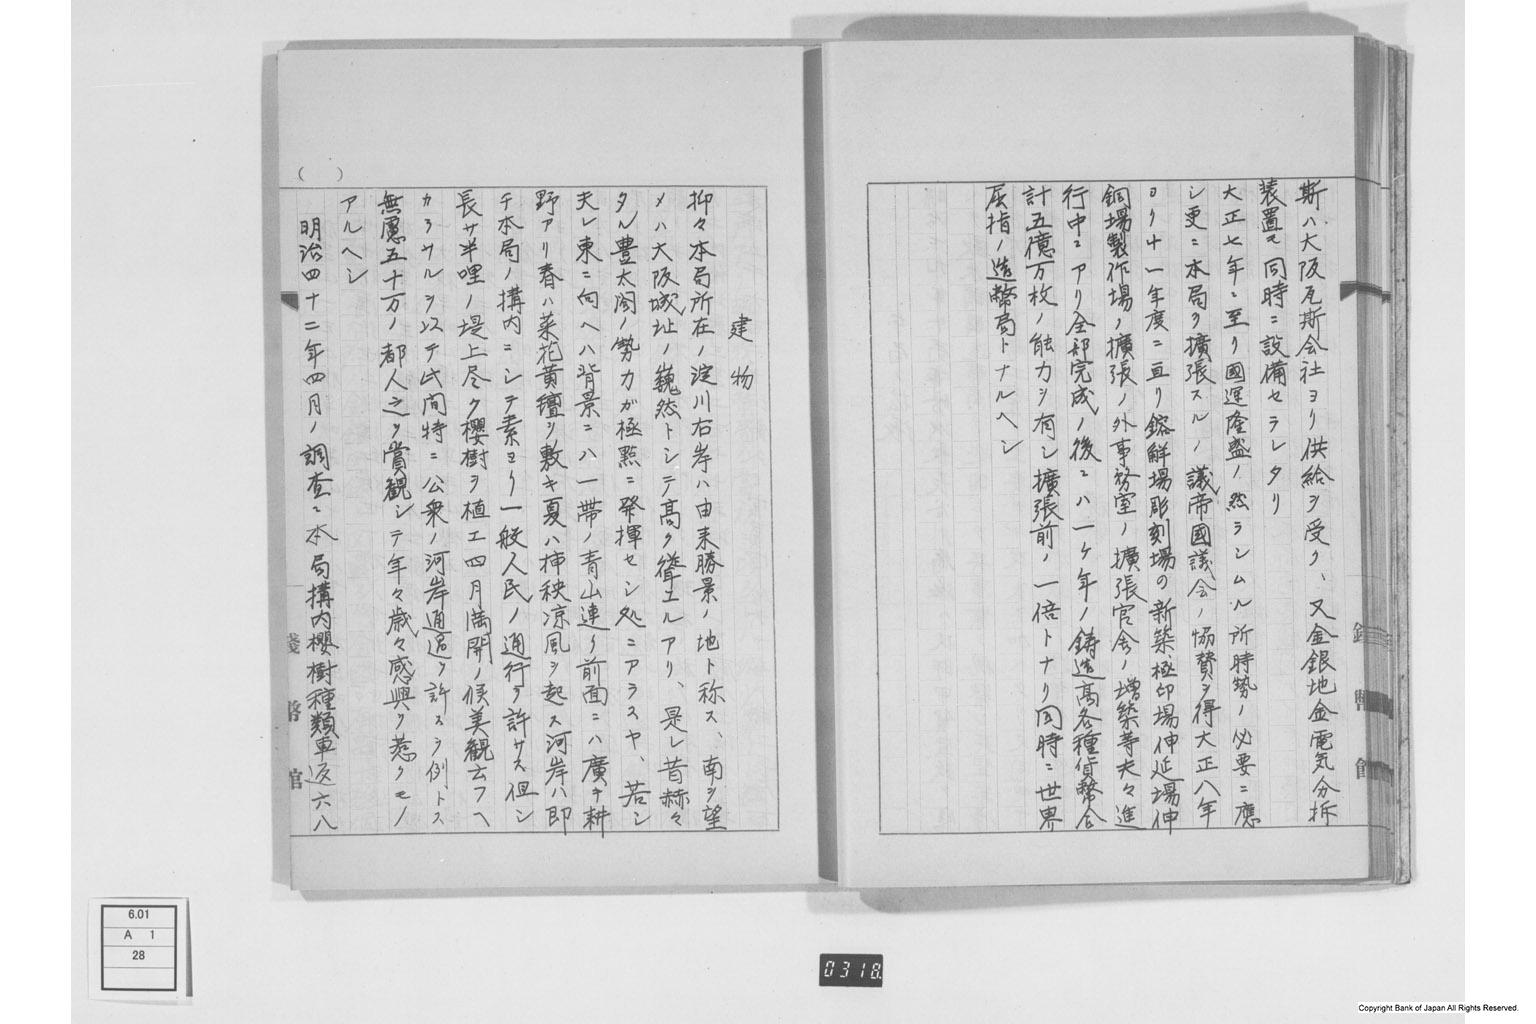 斯ハ大阪瓦斯会社ヨリ供給ヲ受ク、又金銀地金電気分拆
装置モ同時ニ設備セラレタリ
大正七年ニ至リ國運隆盛ノ然ラシムル所時勢ノ必要ニ應
シ更ニ本局ヲ擴張スルノ議帝國議会ノ協賛ヲ得大正八年
ヨリ十一年度ニ亘リ鎔解場彫刻場の新築極印場伸延場伸
銅場製作場ノ擴張ノ外事務室ノ擴張官舎ノ増築等夫々進
行中ニアリ全部完成ノ後ニハ一ケ年ノ鋳造高各種貨幣合
計五億万枚ノ能力ヲ有シ擴張前ノ一倍トナリ同時ニ世界
屈指ノ造幣局トナルヘシ
建物
抑々本局所在ノ淀川右岸ハ由来勝景ノ地ト称ス、南ヲ望
メハ大阪城址ノ巍然トシテ高ク聳エルアリ、是レ昔赫々
タル豊太閤ノ勢力ガ極點ニ発揮セシ処ニアラスヤ、若シ
夫レ東ニ向ヘハ背景ニハ一帯ノ青山連リ前面ニハ廣キ耕
野アリ春ハ菜花黄氈ヲ敷キ夏ハ挿秧凉風ヲ起ス河岸ハ即
チ本局ノ構内ニシテ素ヨリ一般人民ノ通行ヲ許サス但シ
長サ半哩ノ堤上尽ク櫻樹ヲ植エ四月満開ノ候美観云フヘ
カラサルヲ以テ此間特ニ公衆ノ河岸通過ヲ許スヲ例トス
無慮五十万ノ都人之ヲ賞観シテ年々歳々感興ヲ惹クモノ
アルヘシ
明治四十二年四月ノ調査ニ本局構内櫻樹種類車返六八
( )
6.01
A 1
28
0318.
Copyright Bank of Japan All Rights Reserved.